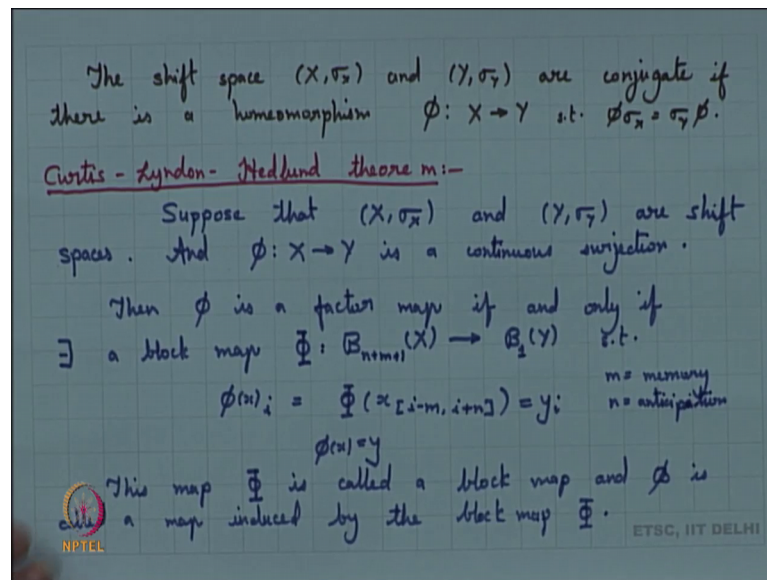 The shift space (X, σ_X) and (Y, σ_Y) are conjugate if
there is a homeomorphism ϕ: X → Y s.t. ϕσ_X = σ_Y ϕ.
Curtis - Lyndon - Hedlund theorem:-
Suppose that (X, σ_X) and (Y, σ_Y) are shift
spaces. And ϕ: X → Y is a continuous surjection.
Then ϕ is a factor map if and only if
∃ a block map Φ: B_{n+m+1}(X) → B_1(Y) s.t.
ϕ(x)_i = Φ(x_[i-m, i+n]) = y_i
m = memory
n = anticipation
ϕ(x) = y
This map Φ is called a block map and ϕ is
called a map induced by the block map Φ.
NPTEL
ETSC, IIT DELHI